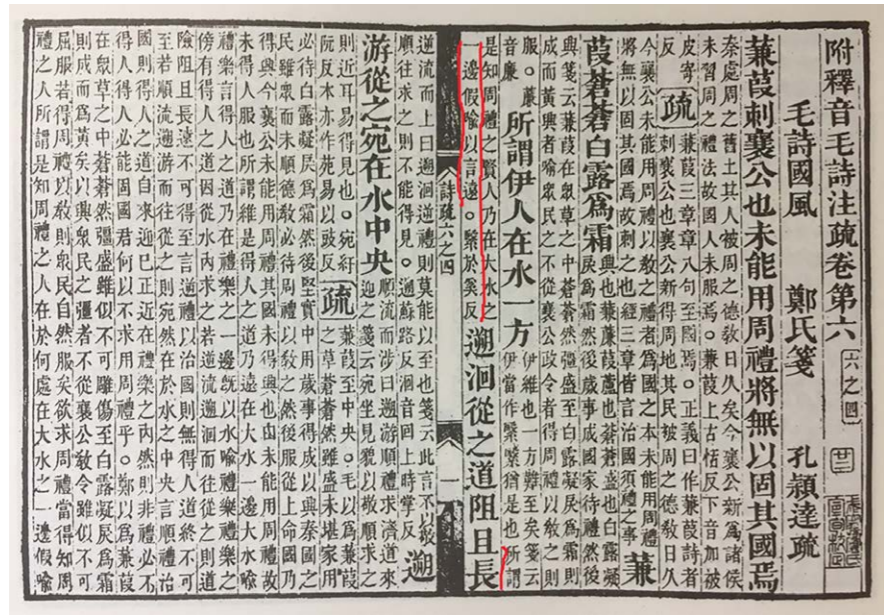 附釋音毛詩注疏卷第六 六之四 廿三
毛詩國風 鄭氏箋 孔穎達疏
蒹葭刺襄公也未能用周禮將無以固其國焉
秦處周之舊土其人被周之德教日久矣今襄公新爲諸侯
未習周之禮法故國人未服焉。蒹葭上古恬反下音加被
皮寄反 疏 蒹葭三章章八句至國焉。正義曰作蒹葭詩者
刺襄公也襄公新得周地其民被周之德教日久
今襄公未能用周禮以教之禮者爲國之本未能用周禮
將無以固其國焉故刺之也經三章皆言治國須禮之事 蒹
葭蒼蒼白露爲霜 興也蒹薕葭蘆也蒼蒼盛也白露凝
戾爲霜然後歲事成國家待禮然後
興箋云蒹葭在眾草之中蒼蒼然彊盛至白露凝戾爲霜則
成而黃興者喻眾民之不從襄公政令者得周禮以教之則
服。薕音廉 所謂伊人在水一方 伊維也一方難至矣箋云
伊當作繄繄猶是也所謂
是知周禮之賢人乃在大水之
一邊假喻以言遠。繄於奚反 遡洄從之道阻且長
詩疏六之四 一
逆流而上曰遡洄逆禮則莫能以至也箋云此言不以敬
順往求之則不能得見。遡蘇路反洄音回上時掌反 遡
游從之宛在水中央 順流而涉曰遡游順禮求濟道來
迎之箋云宛坐見貌以敬順求之
則近耳易得見也。宛紆
阮反本亦作苑易以豉反 疏 蒹葭至中央。毛以爲蒹葭
之草蒼蒼然雖盛未堪家用
必待白露凝戾爲霜然後堅實中用歲事得成以興秦國之
民雖眾而未順德教必待周禮以教之然後服從上命國乃
得興今襄公未能用周禮其國未得興也由未能用周禮故
未得人服也所謂維是得人之道乃遠在大水一邊大水喻
禮樂言得人之道乃在禮樂之一邊既以水喻禮樂禮樂之
傍有得人之道因從水內求之若逆流遡洄而往從之則道
險阻且長遠不可得至言逆禮以治國則無得人道終不可
至若順流遡游而往從之則宛然在於水之中央言順禮治
國則得人之道自來迎已正近在禮樂之內然則非禮必不
得人得人必能固國君何以不求用周禮乎。鄭以爲蒹葭
在眾草之中蒼蒼然彊盛雖似不可雕傷至白露凝戾爲霜
則成而爲黃矣以興眾民之彊者不從襄公教令雖似不可
屈服若得周禮以教則眾民自然服矣欲求周禮當得知周
禮之人所謂是知周禮之人在於何處在大水之一邊假喻